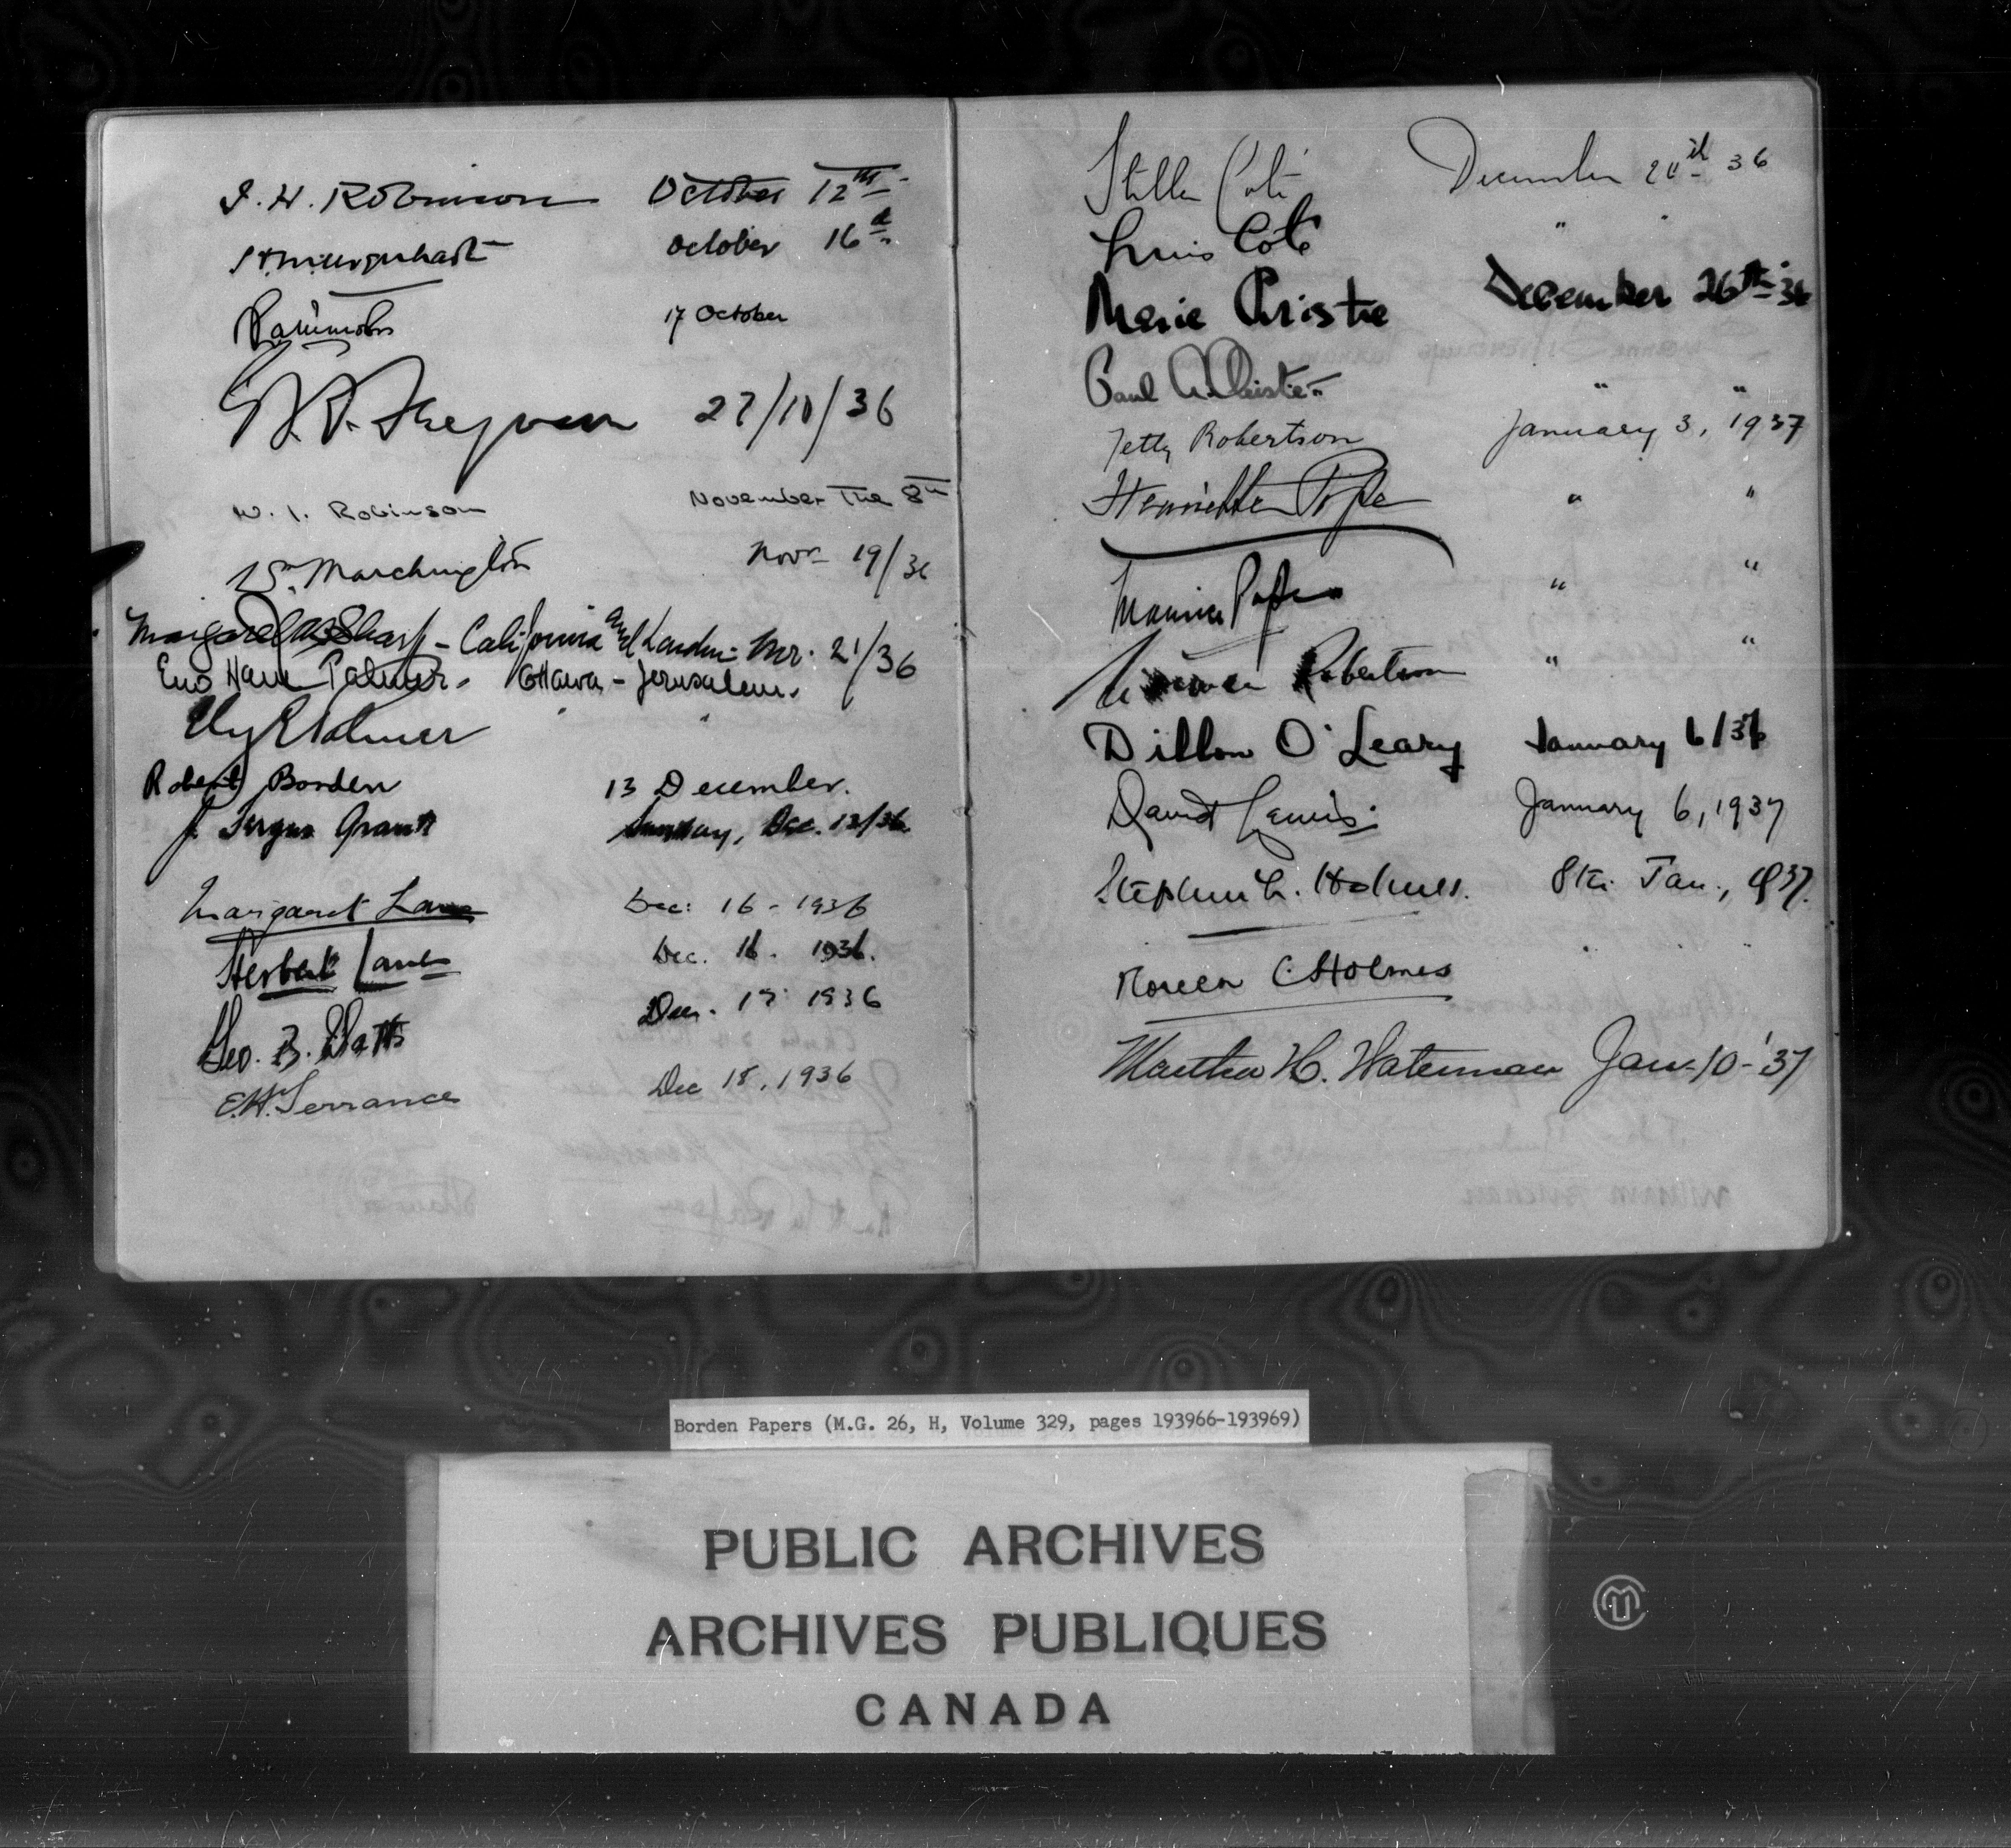 J. H. Robinson October 12th
October 16th
17 October
27/10/36
W. I. Robinson November The 8th
Marchington Novr 19/36
Margaret Sharp - California and London - Nov. 21/36
Palmer. Ottawa - Jerusalem.
Ely Palmer " "
Robert Borden 13 December.
J. Fergus Grant Sunday, Dec. 13/36
Margaret Lane Dec: 16 - 1936
Herbert Lane Dec. 16. 1936.
Geo. B. Batts Dec. 17 1936
E.H. Torrance Dec 18, 1936
Stella Coté December 24th 36
Louis Coté "
Marie Christie December 26th 36
Paul A. Christie " "
Jetty Robertson January 3, 1937
Henriette Pope " "
Maurice Pope " "
Norman Robertson " "
Dillon O'Leary January 6/37
David Lewis. January 6, 1937
Stephen L. Holmes. 8th Jan., 1937.
Noreen C Holmes " "
Martha H. Waterman Jan-10-'37
Borden Papers (M.G. 26, H, Volume 329, pages 193966-193969)
PUBLIC ARCHIVES
ARCHIVES PUBLIQUES
CANADA